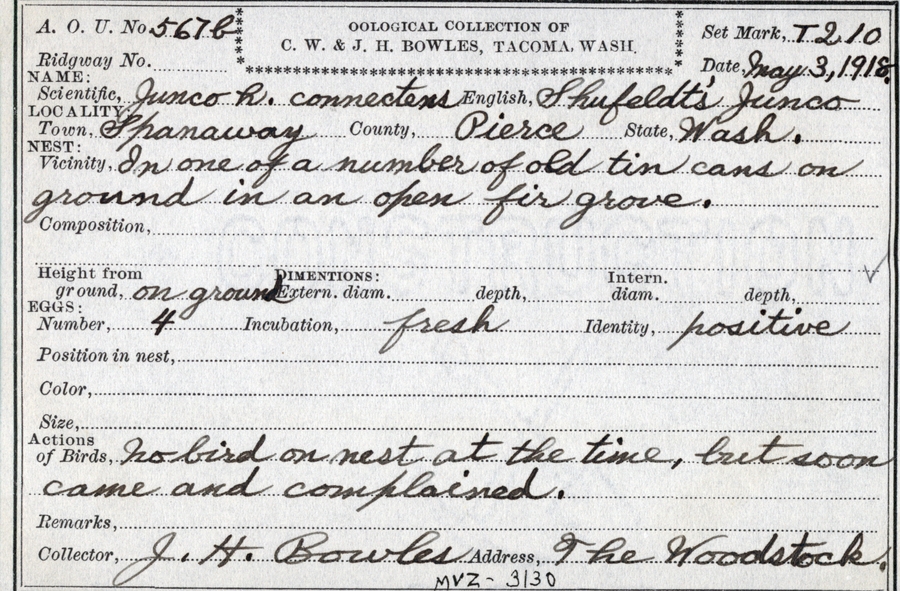 A. O. U. No. 567b
OOLOGICAL COLLECTION OF
C. W. & J. H. BOWLES, TACOMA, WASH.
Set Mark, T 2 10
Ridgway No.
Date, May 3, 1918.
NAME:
Scientific, Junco h. connectens English, Shufeldt's Junco
LOCALITY:
Town, Spanaway County, Pierce State, Wash.
NEST:
Vicinity, In one of a number of old tin cans on
ground in an open fir grove.
Composition,
Height from DIMENTIONS: Intern.
ground, on ground Extern. diam. depth, diam. depth,
EGGS:
Number, 4 Incubation, fresh Identity, positive
Position in nest,
Color,
Size,
Actions
of Birds, No bird on nest at the time, but soon
came and complained.
Remarks,
Collector, J. H. Bowles Address, The Woodstock.
MVZ - 3130